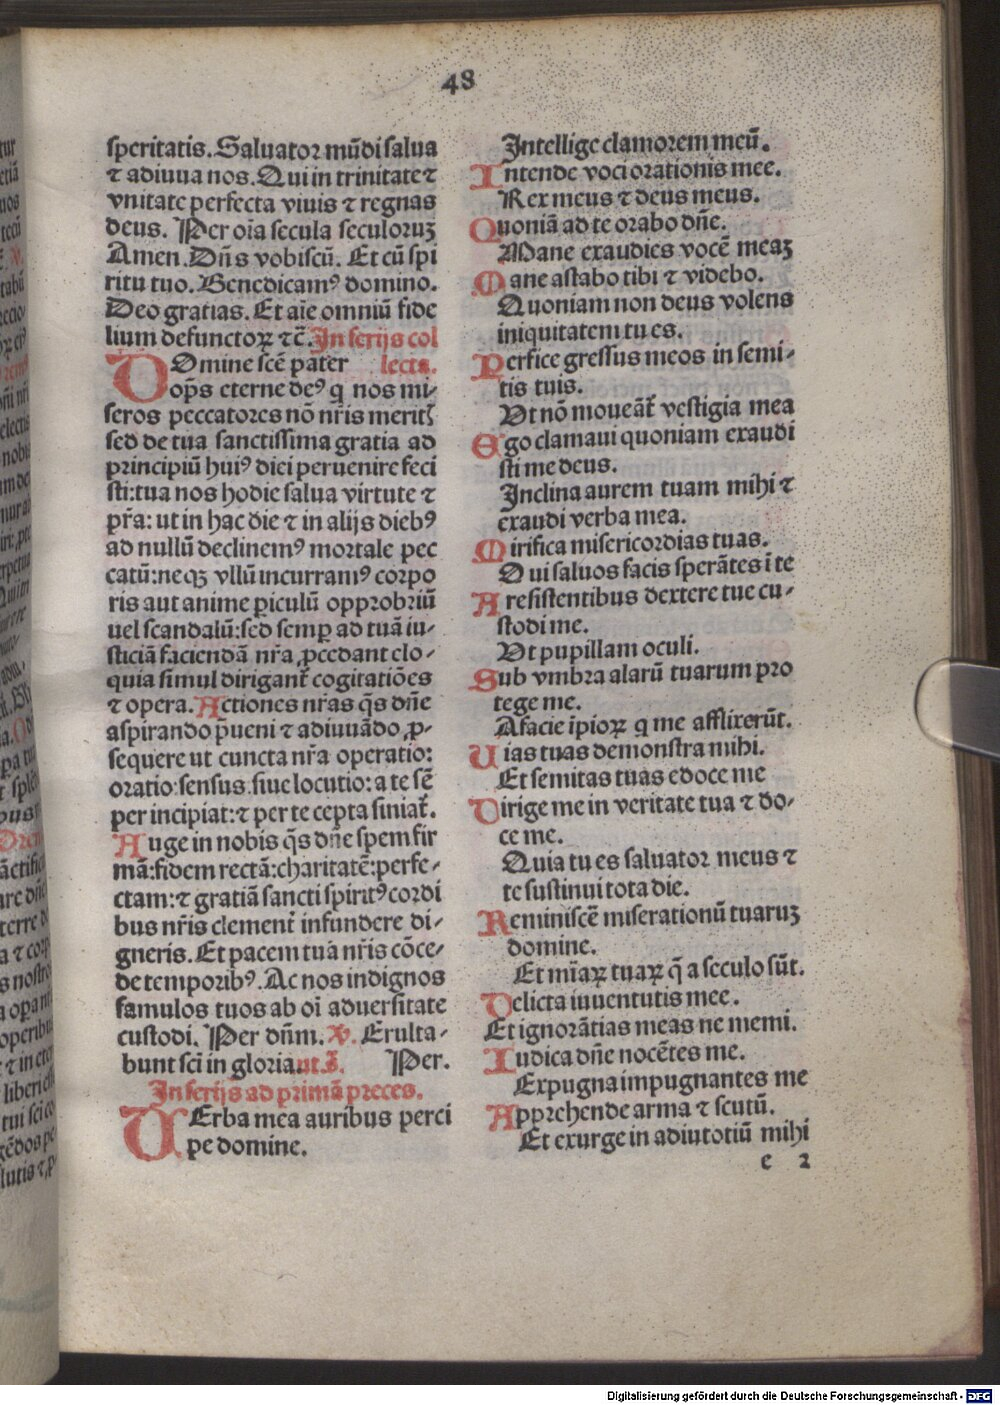 48
speritatis. Saluator mūdi salua
⁊ adiuua nos. Qui in trinitate ⁊
vnitate perfecta viuis ⁊ regnas
deus. Per oīa secula seculoruꝫ
Amen. Dn̄s vobiscū. Et cū spi
ritu tuo. Benedicamꝰ domino.
Deo gratias. Et aīe omniū fide
lium defunctoꝝ ⁊c̄. In ferijs col
DOmine scē pater lecta.
oōps eterne deꝰ q nos mi-
seros peccatores nō nr̄is meritꝭ
sed de tua sanctissima gratia ad
principiū huiꝰ diei peruenire feci
sti: tua nos hodie salua virtute ⁊
pr̄a: ut in hac die ⁊ in alijs diebꝰ
ad nullū declinemꝰ mortale pec
catū: neqꝫ vllū incurramꝰ corpo
ris aut anime ꝑiculū opprobriū
uel scandalū: sed semꝑ ad tuā iu-
sticiā faciendā nr̄a ꝓcedant elo-
quia simul dirigant̄ cogitatiōes
⁊ opera. Actiones nr̄as q̄s dn̄e
aspirando p̄ueni ⁊ adiuuādo ꝓ-
sequere ut cuncta nr̄a operatio:
oratio sensus siue locutio: a te sē
per incipiat: ⁊ per te cepta finiat̄.
Auge in nobis q̄s dn̄e spem fir
mā: fidem rectā: charitatē: perfe-
ctam: ⁊ gratiā sancti spiritꝰ cordi
bus nr̄is clement̄ infundere di-
gneris. Et pacem tuā nr̄is cōce-
de temporibꝰ. Ac nos indignos
famulos tuos ab oī aduersitate
custodi. Per dn̄m. V. Exulta-
bunt sc̄i in gloria ut s̄. Per.
In ferijs ad primā preces.
VErba mea auribus perci
pe domine.
Intellige clamorem meū.
Intende voci orationis mee.
Rex meus ⁊ deus meus.
Quoniā ad te orabo dn̄e.
Mane exaudies vocē meaꝫ
Mane astabo tibi ⁊ videbo.
Quoniam non deus volens
iniquitatem tu es.
Perfice gressus meos in semi-
tis tuis.
Ut nō moueāt̄ vestigia mea
Ego clamaui quoniam exaudi
sti me deus.
Inclina aurem tuam mihi ⁊
exaudi verba mea.
Mirifica misericordias tuas.
Qui saluos facis sperātes ī te
A resistentibus dextere tue cu-
stodi me.
Ut pupillam oculi.
Sub vmbra alarū tuarum pro
tege me.
A facie īpioꝝ q me afflixerūt.
Uias tuas demonstra mihi.
Et semitas tuas edoce me
Dirige me in veritate tua ⁊ do-
ce me.
Quia tu es saluator meus ⁊
te sustinui tota die.
Reminiscē miserationū tuaruꝫ
domine.
Et mīaꝝ tuaꝝ q̄ a seculo sūt.
Delicta iuuentutis mee.
Et ignorātias meas ne memi.
Iudica dn̄e nocētes me.
Expugna impugnantes me
Apprehende arma ⁊ scutū.
Et exurge in adiutotiū mihi
e 2
Digitalisierung gefördert durch die Deutsche Forschungsgemeinschaft - DFG